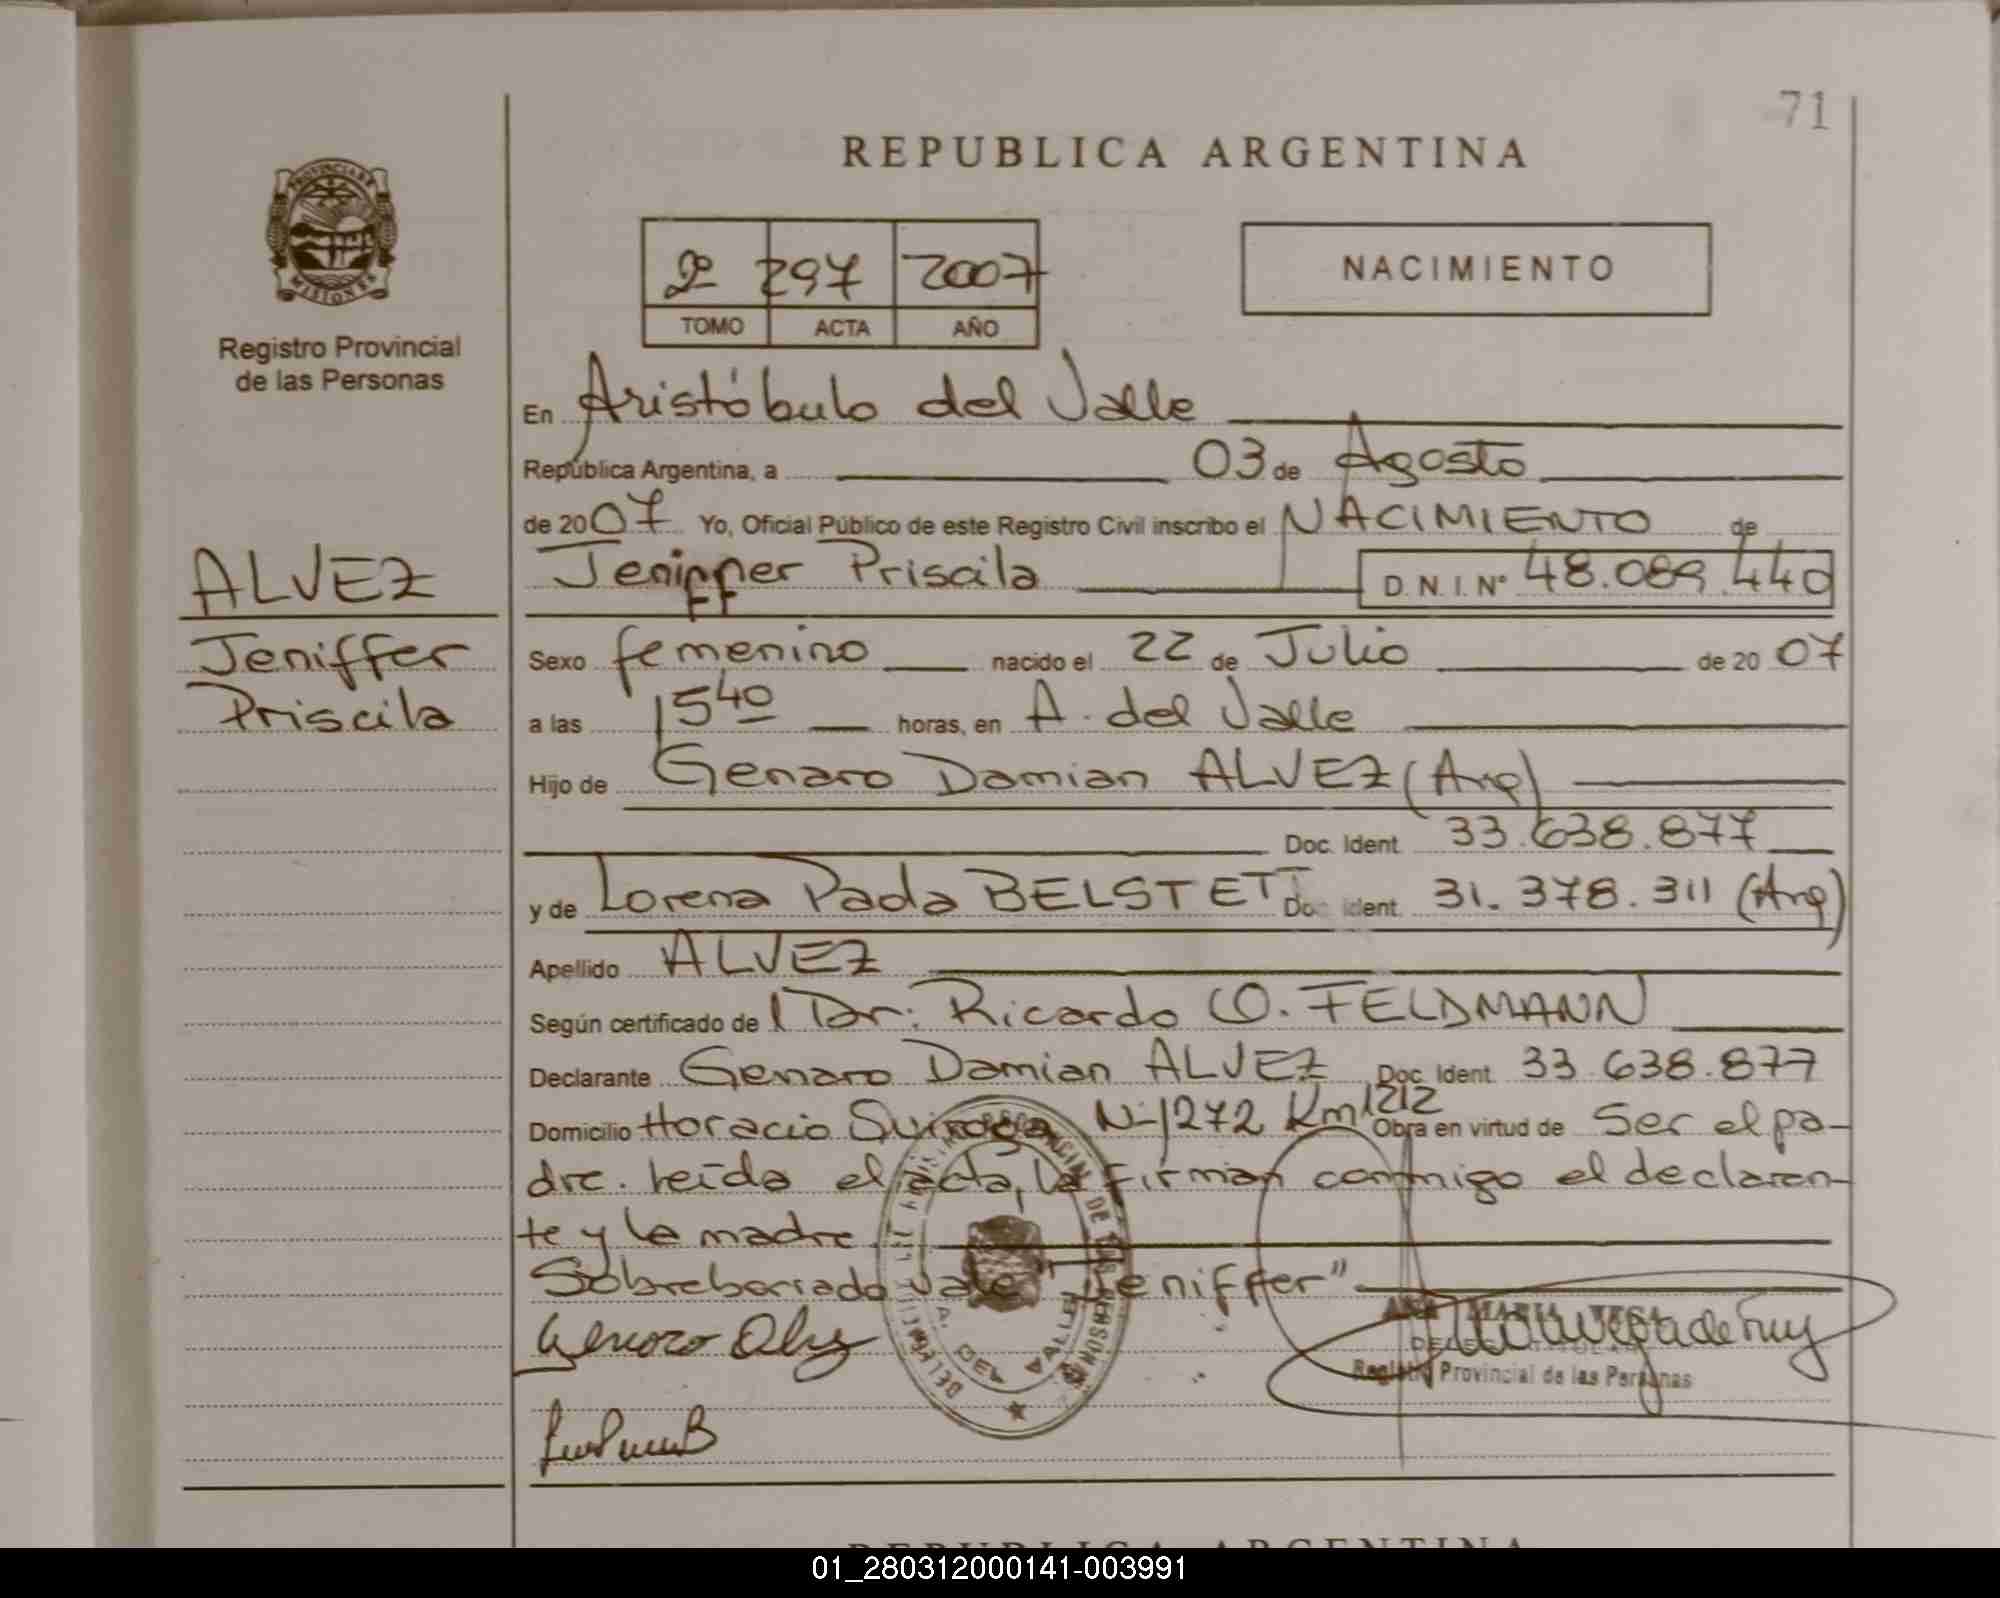 71
REPUBLICA ARGENTINA
PROVINCIA DE
MISIONES
Registro Provincial
de las Personas
2º 297 2007
TOMO ACTA AÑO
NACIMIENTO
En Aristóbulo del Valle
República Argentina, a 03 de Agosto
de 2007 Yo, Oficial Público de este Registro Civil inscribo el NACIMIENTO de
ALVEZ
Jeniffer Priscila D.N.I. Nº 48.089.440
Jeniffer
Sexo femenino nacido el 22 de Julio de 2007
Priscila
a las 15 40 horas, en A. del Valle
Hijo de Genaro Damian ALVEZ (Arg)
Doc. Ident. 33.638.877
y de Lorena BELSTETT Doc ident. 31.378.311 (Arg)
Apellido ALVEZ
Según certificado del Dr: Ricardo O. FELDMANN
Declarante Genaro Damian ALVEZ Doc. Ident. 33.638.877
Domicilio Horacio Quiroga N-1272 Km 1212 Obra en virtud de Ser el pa-
dre. leída el acta, la firman conmigo el declaran-
te y la madre
Sobreborrado vale "Jeniffer"
A. DEL VALLE
ANA MARIA VEGA
Registro Provincial de las Personas
REPUBLICA ARGENTINA
01_280312000141-003991